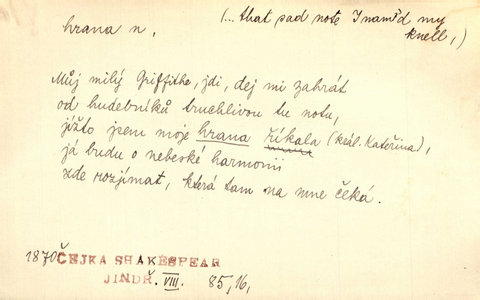 hrana n.
(... that sad note I nam'd my
knell,)
Můj milý Griffithe, jdi, dej mi zahrát
od hudebníků truchlivou tu notu,
jížto jsem moje hrana říkala (král. Kateřina),
já budu o nebeské harmonii
zde rozjímat, která tam na mne čeká.
1870 ČEJKA SHAKESPEAR
JINDŘ. VIII. 85, 16,